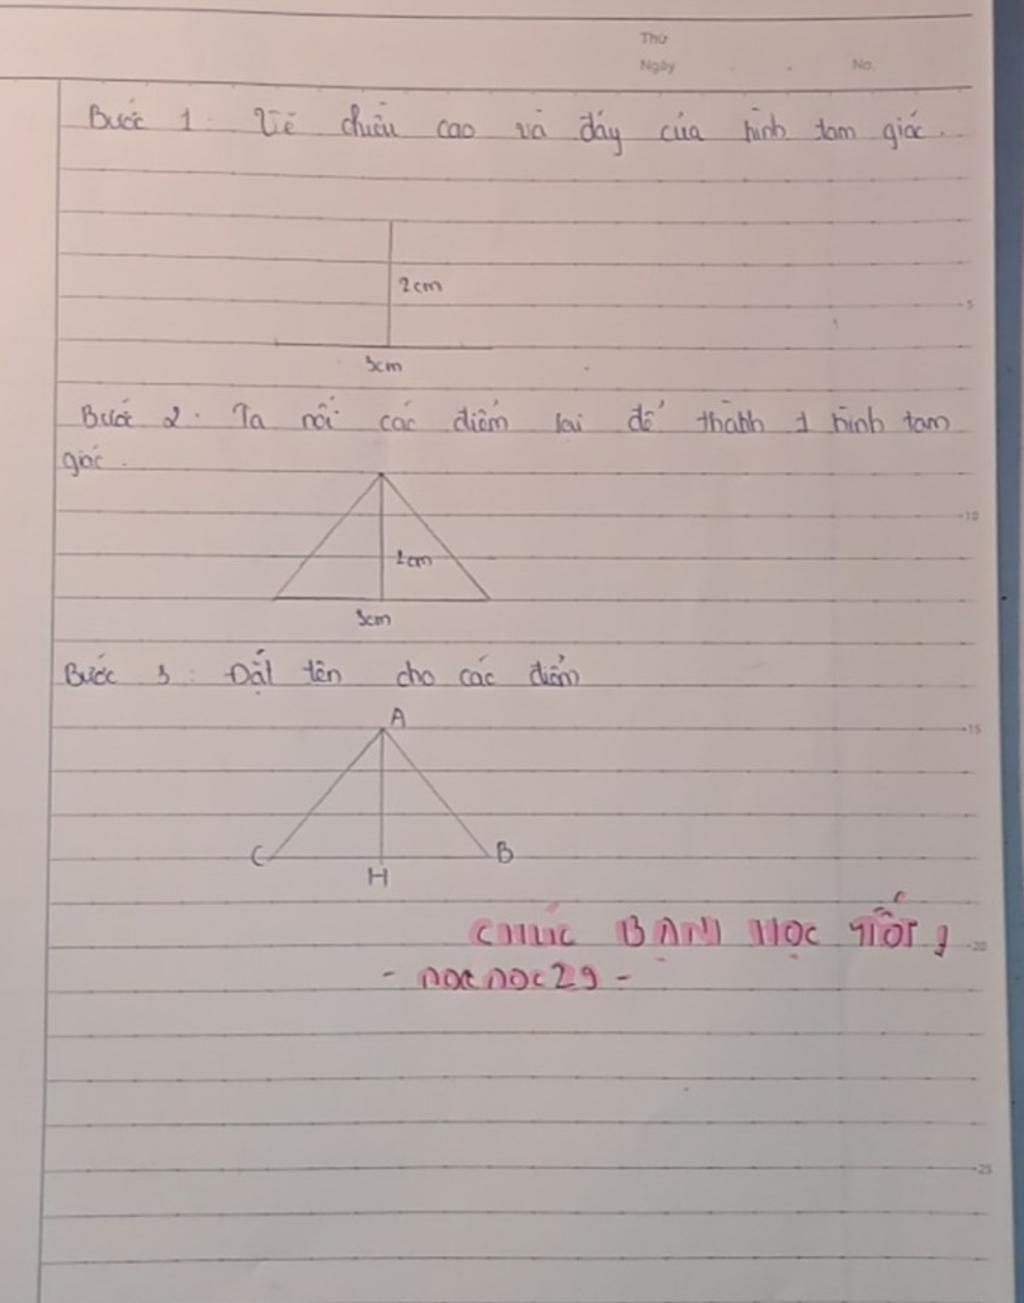 Thứ
Ngày No.
Bước 1: Vẽ chiều cao và đáy của hình tam giác.
2cm
5
3cm
Bước 2: Ta nối các điểm lại để thành 1 hình tam
giác.
10
2cm
3cm
Bước 3: Đặt tên cho các điểm
A
15
C B
H
CHÚC BẠN HỌC TỐT!
20
- nocnoc29 -
25